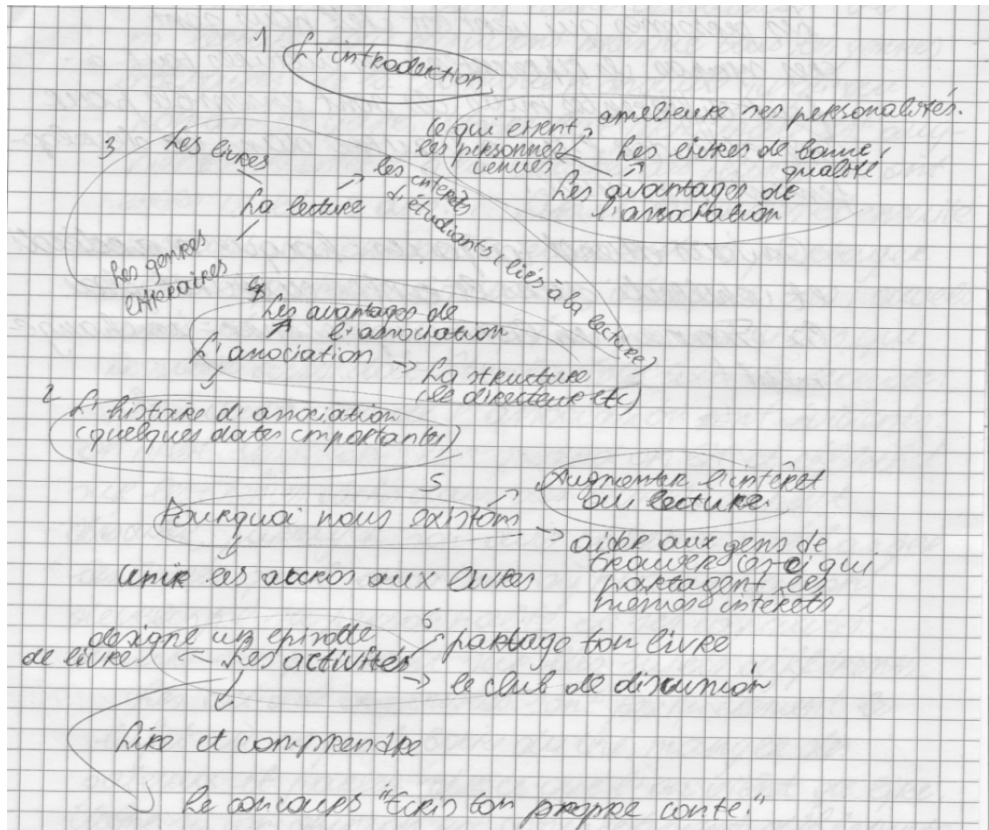 1 L'introduction
améliore ses personalités.
ce qui
les personnes
venues
Les livres de bonne
qualité
Les avantages de
l'association
3 Les livres
La lecture
les intérêts
d'étudiants (liés à la lecture)
Les genres
littéraires
4 Les avantages de
l'association
L'association
La structure
(le directeur etc)
2 L'histoire d'association
(quelques dates importantes)
5
Pourquoi nous existons
Augmenter l'intérêt
au lecture.
aider aux gens de
trouver ceci qui
partagent les
mêmes intérêts
unir les accros aux livres
6
designe un episode
de livre
Les activités
partage ton livre
le club de discussion
Lire et comprendre
Le concours "Ecris ton propre conte."